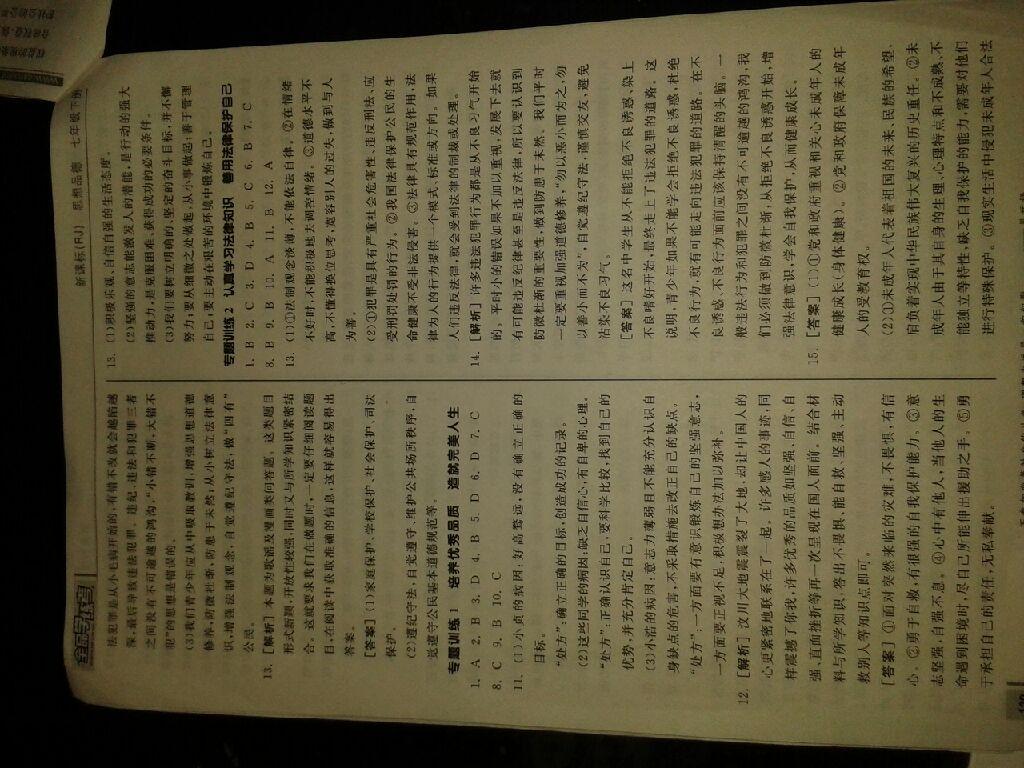 全品学练考
新课标(RJ) 思想品德 七年级下册
法犯罪是从小毛病开始的,有错不改就会越陷越
深,最后导致违法犯罪。违纪、违法和犯罪三者
之间没有不可逾越的鸿沟,“小错不断,大错不
犯”的思想是错误的。
(3)我们青少年应从中吸取教训,增强思想道德
修养,防微杜渐,防患于未然;从小树立法律意
识,增强法制观念,自觉遵纪守法,做“四有”
公民。
13. [解析] 本题为歌谣及漫画类问答题。这类题目
形式新颖,开放性较强,同时又与所学知识紧密结
合。这就要求我们在做题时,一定要仔细阅读题
目,在阅读中获取准确的信息,这样就容易得出
答案。
[答案] (1)家庭保护、学校保护、社会保护、司法
保护。
(2)遵纪守法,自觉遵守、维护公共场所秩序,自
觉遵守公民基本道德规范等。
专题训练 1 培养优秀品质 造就完美人生
1. A 2. B 3. D 4. B 5. D 6. D 7. C
8. C 9. B 10. C
11. (1)小贞的病因:好高骛远,没有确立正确的
目标。
“处方”:确立正确的目标,创造成功的记录。
(2)这些同学的病因:缺乏自信心,有自卑的心理。
“处方”:正确认识自己,要科学比较,找到自己的
优势,并充分肯定自己。
(3)小浩的病因:意志力薄弱且不能充分认识自
身缺点的危害,不采取措施去改正自己的缺点。
“处方”:一方面要有意识锻炼自己的坚强意志,
一方面要正视不足,积极想办法加以弥补。
12. [解析] 汶川大地震震裂了大地,却让中国人的
心更紧密地联系在了一起。许多感人的事迹,同
样震撼了你我,许多优秀的品质如坚强、自信、自
强、直面挫折等再一次呈现在国人面前。结合材
料与所学知识,答出不畏惧、能自救、坚强、主动
救别人等知识点即可。
[答案] ①面对突然来临的灾难,不畏惧,有信
心。②勇于自救,有很强的自我保护能力。③意
志坚强,自强不息。④心中有他人,当他人的生
命遇到困境时,尽自己所能伸出援助之手。⑤勇
于承担自己的责任,无私奉献。
13. (1)积极乐观、自信自强的生活态度。
(2)坚强的意志能激发人的潜能,是行动的强大
推动力,是克服困难、获得成功的必要条件。
(3)我们要树立明确的、坚定的奋斗目标,并不懈
努力;要从细微之处做起,从小事做起;善于管理
自己;要主动在艰苦的环境中锻炼自己。
专题训练 2 认真学习法律知识 善用法律保护自己
1. B 2. C 3. D 4. B 5. C 6. B 7. C
8. B 9. B 10. A 11. B 12. A
13. (1)①法制观念淡薄,不能依法自律。②在情绪
不好时,不能积极地去调控情绪。③道德水平不
高,不懂得换位思考,宽容别人的过失,做到与人
为善。
(2)①犯罪是具有严重社会危害性、违反刑法、应
受刑罚处罚的行为。②我国法律保护公民的生
命健康不受非法侵害。③法律具有规范作用,法
律为人的行为提供一个模式、标准或方向。如果
人们违反法律,就会受到法律的制裁或处理。
14. [解析] 许多违法犯罪行为都是从不良习气开始
的,平时小的错误如果不加以重视,发展下去就
有可能违反纪律甚至是违反法律,所以要认识到
防微杜渐的重要性,做到防患于未然。我们平时
一定要重视加强道德修养,“勿以恶小而为之,勿
以善小而不为”,自觉遵纪守法,谨慎交友,避免
沾染不良习气。
[答案] 这名中学生从不能拒绝不良诱惑、染上
不良嗜好开始,最终走上了违法犯罪的道路。这
说明,青少年如果不能学会拒绝不良诱惑,杜绝
不良行为,就有可能走向违法犯罪的道路。在不
良诱惑、不良行为面前应该保持清醒的头脑。一
般违法行为和犯罪之间没有不可逾越的鸿沟,我
们必须做到防微杜渐,从拒绝不良诱惑开始,增
强法律意识,学会自我保护,从而健康成长。
15. [答案] (1)①党和政府重视和关心未成年人的
健康成长(身体健康)。②党和政府保障未成年
人的受教育权。
(2)①未成年人代表着祖国的未来、民族的希望,
肩负着实现中华民族伟大复兴的历史重任。②未
成年人由于其自身的生理、心理特点和不成熟、不
能独立等特性,缺乏自我保护的能力,需要对他们
进行特殊保护。③现实生活中侵犯未成年人合法